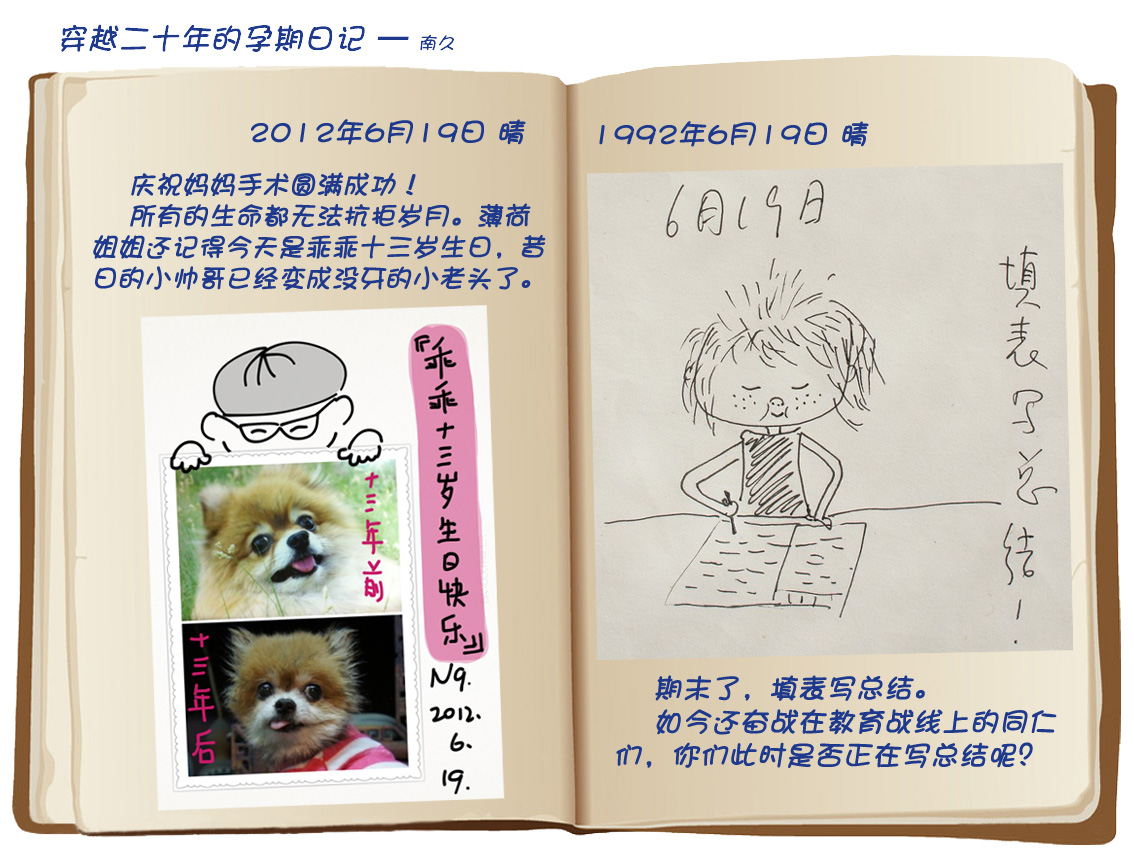 穿越二十年的孕期日记 — 南久
2012年6月19日 晴
庆祝妈妈手术圆满成功！
所有的生命都无法抗拒岁月。薄荷
姐姐还记得今天是乖乖十三岁生日，昔
日的小帅哥已经变成没牙的小老头了。
『乖乖十三岁生日快乐』
十三年前
十三年后
N9.
2012.
6.
19.
1992年6月19日 晴
6月19日
填表写总结！
期末了，填表写总结。
如今还奋战在教育战线上的同仁
们，你们此时是否正在写总结呢？